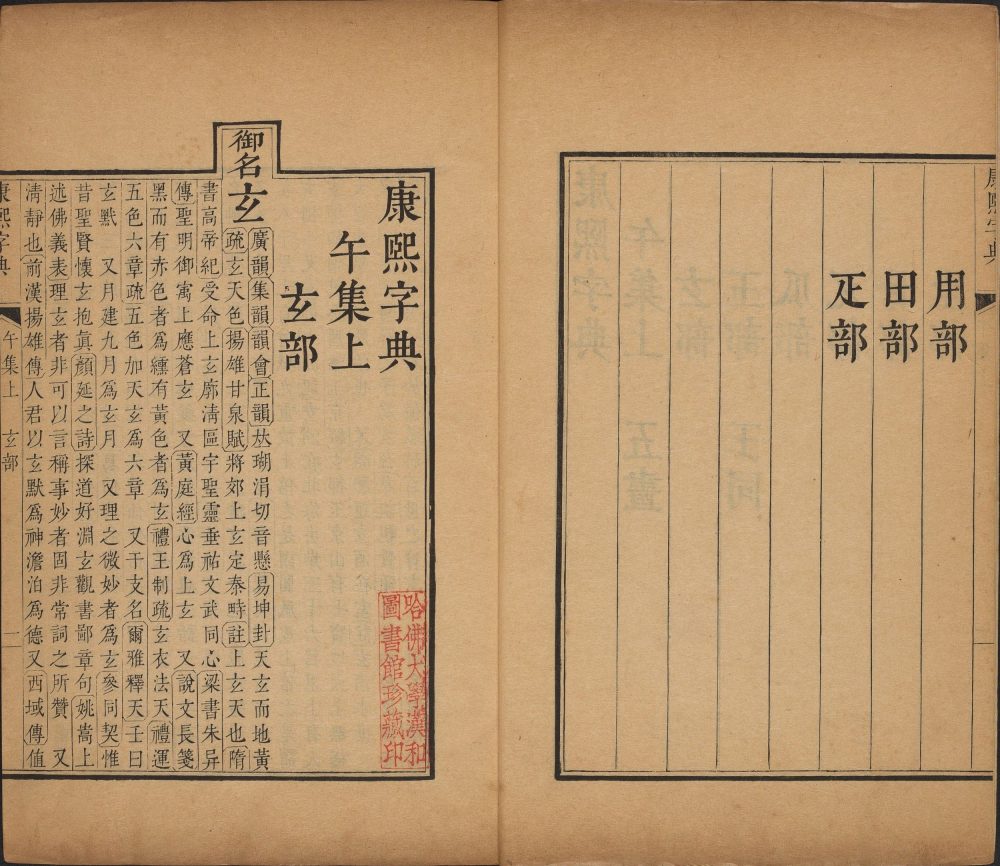 康熙字典
用部
田部
疋部
康熙字典
午集上
玄部
御名
玄
廣韻集韻韻會正韻𠀤瑚涓切音懸易坤卦天玄而地黃
疏玄天色揚雄甘泉賦將郊上玄定泰畤註上玄天也隋
書高帝紀受命上玄廓清區宇聖靈垂祐文武同心梁書朱异
傳聖明御寓上應蒼玄 又黃庭經心爲上玄 又說文長箋
黑而有赤色者爲纁有黃色者爲玄禮王制疏玄衣法天禮運
五色六章疏五色加天玄爲六章 又干支名爾雅釋天壬曰
玄黓 又月建九月爲玄月 又理之微妙者爲玄參同契惟
昔聖賢懷玄抱眞顏延之詩探道好淵玄觀書鄙章句姚嵩上
述佛義表理玄者非可以言稱事妙者固非常詞之所贊 又
淸靜也前漢揚雄傳人君以玄默爲神澹泊爲德又西域傳值
康熙字典
午集上
玄部
一
哈佛大學漢和
圖書館珍藏印